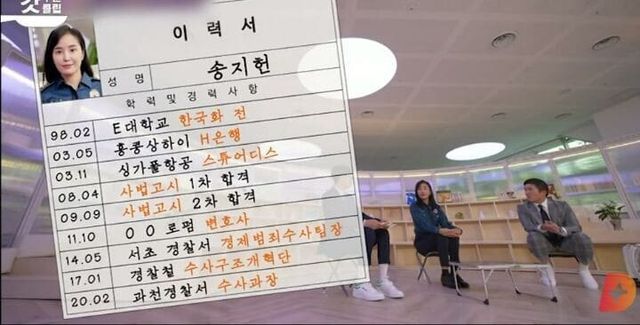 갓
클립
이 력 서
성 명 송지헌
학 력 및 경 력 사 항
98.02 E대학교 한국화 전
03.05 홍콩상하이 H은행
03.11 싱가폴항공 스튜어디스
08.04 사법고시 1차 합격
09.09 사법고시 2차 합격
11.10 O O 로펌 변호사
14.05 서초 경찰서 경제범죄수사팀장
17.01 경찰청 수사구조개혁단
20.02 과천경찰서 수사과장
D